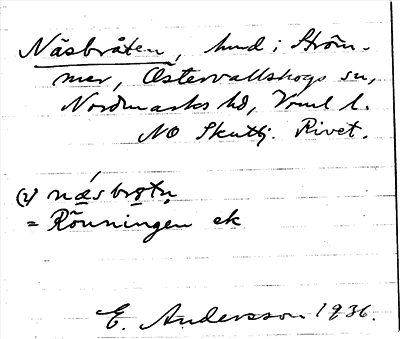 Näsbråten, hmd i Ström-
mer, Östervallskogs sn,
Nordmarks hd, Vrml l.
NO Skutbj. Rivet.
(2) nǽ̲sbro̲tn̥
= Rönningen ek
E. Andersson 1936.